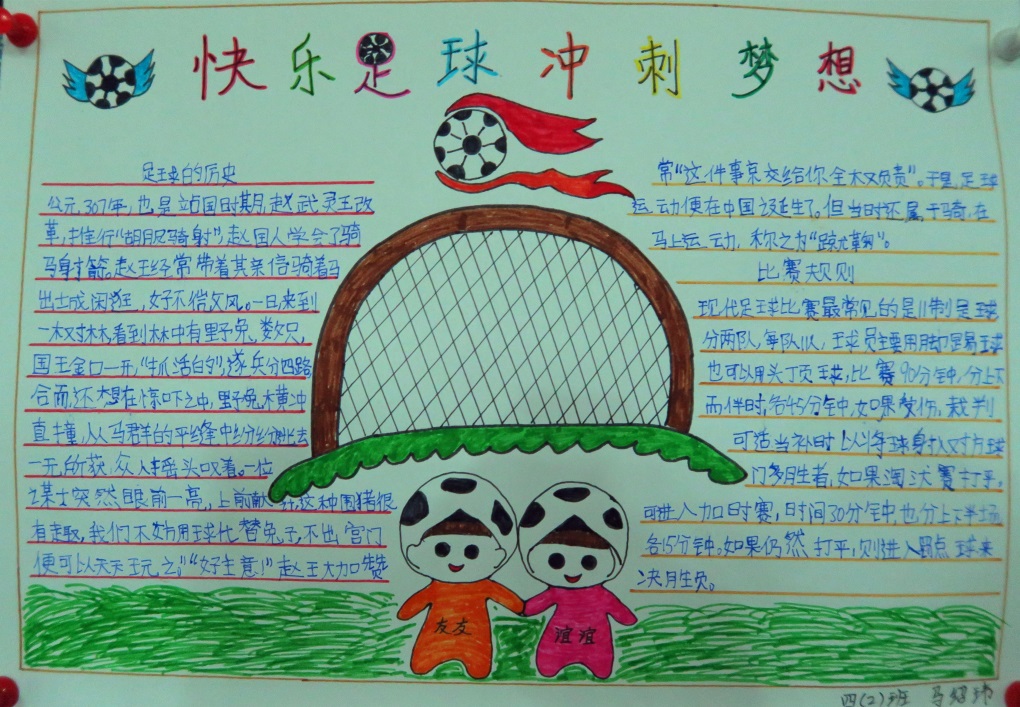 快乐足球冲刺梦想
足球的历史
公元307年,也是站国时期,赵武灵王改
革,推行“胡服骑射”,赵国人学会了骑
马射箭。赵王经常带着其亲信骑着马
出城闲逛,好不惬意风。一日来到
一树林,看到林中有野兔数只,
国王金口一开,“抓活的”,遂兵分四路
合而还想在惊吓之中,野兔横冲
直撞,从人马群的平缝中纷纷逃去
一无所获,众人摇头叹着。一位
谋士突然眼前一亮,上前献计,这种围猎很
有趣,我们不如用球比替兔子,不出宫门
便可以天天玩之。”“好生意!”赵王大加赞
常“这件事京交给你全权负责”。于是,足球
运动便在中国诞生了。但当时还属于骑,在
马上运动,称之为“踢鞠”。
比赛规则
现代足球比赛最常见的是11制足球
分两队,每队11人,球员主要用脚踢球
也可以用头顶球,比赛90分钟,分上下
而伴时,各45分钟,如果
裁判
可适当补时
球身
对方球
门多月生者,如果淘汰赛打平,
可进入加时赛,时间30分钟也分上下半场
各15分钟,如果仍然打平,则进入罚点球来
决月生负。
友友
谊谊
四(2)班 马